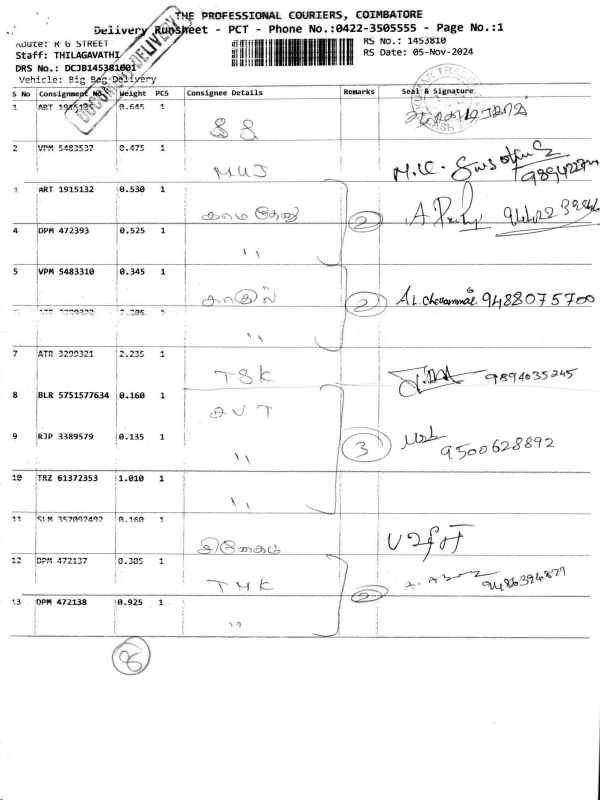 THE PROFESSIONAL COURIERS, COIMBATORE
Delivery Runsheet - PCT - Phone No.:0422-3505555 - Page No.:1
Route: R G STREET
RS No.: 1453810
Staff: THILAGAVATHI
RS Date: 05-Nov-2024
DRS No.: DCJB145381001
Vehicle: Big Bag Delivery
DOCUMENT DELIVERY
S No Consignment No Weight PCS Consignee Details Remarks Seal & Signature
1 ART 0.645 1
2 VPM 5483537 0.475 1 MUJ M.K.
ART 1915132 0.530 1 காமதேனு 2 A 94422
4 DPM 472393 0.525 1 ''
5 VPM 5483310 0.345 1 2 AL.Chevammai 9488075700
1 ''
7 ATR 3299321 2.235 1 TSK 9894035245
8 BLR 5751577634 0.160 1 AVT
9 RJP 3389579 0.135 1 '' 3 9500628892
10 TRZ 61372353 1.010 1 ''
11 SLM 357092492 0.160 1
12 DPM 472137 0.305 1 TMK 2
13 DPM 472138 0.925 1 ''
8